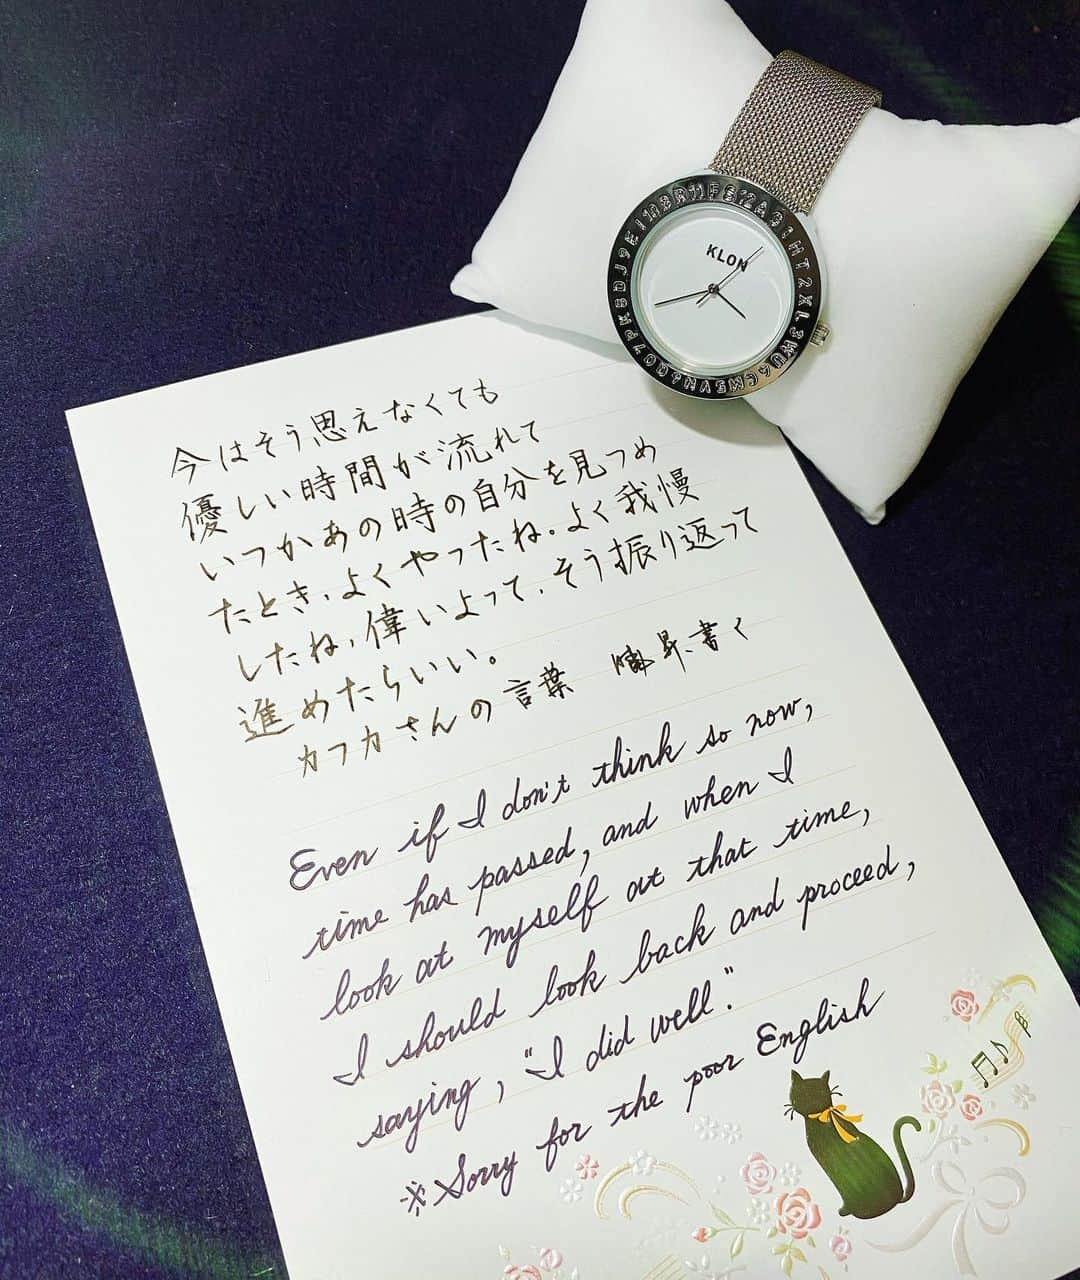 KLON
今はそう思えなくても
優しい時間が流れて
いつかあの時の自分を見つめ
たとき、よくやったね。よく我慢
したね、偉いよって、そう振り返って
進めたらいい。
カフカさんの言葉 昇、書く
Even if I don't think so now,
time has passed, and when I
look at myself at that time,
I should look back and proceed,
saying, "I did well."
※Sorry for the poor English